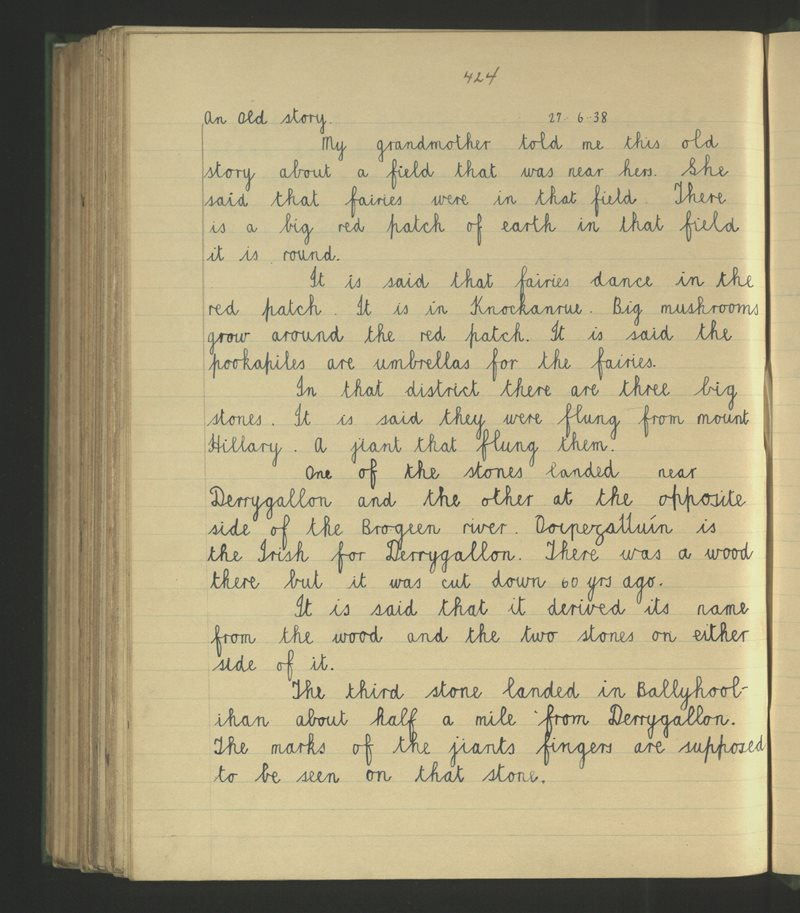 424
An Old story. 27-6-38
My grandmother told me this old
story about a field that was near hers. She
said that fairies were in that field. There
is a big red patch of earth in that field
it is round.
It is said that fairies dance in the
red patch. It is in Knockanrue. Big mushrooms
grow around the red patch. It is said the
pookapiles are umbrellas for the fairies.
In that district there are three big
stones. It is said they were flung from mount
Hillary. A jiant that flung them.
One of the stones landed near
Derrygallon and the other at the opposite
side of the Brogeen river. is
the Irish for Derrygallon. There was a wood
there but it was cut down 60 yrs ago.
It is said that it derived its name
from the wood and the two stones on either
side of it.
The third stone landed in Ballyhool-
ihan about half a mile from Derrygallon.
The marks of the jiants fingers are supposed
to be seen on that stone.